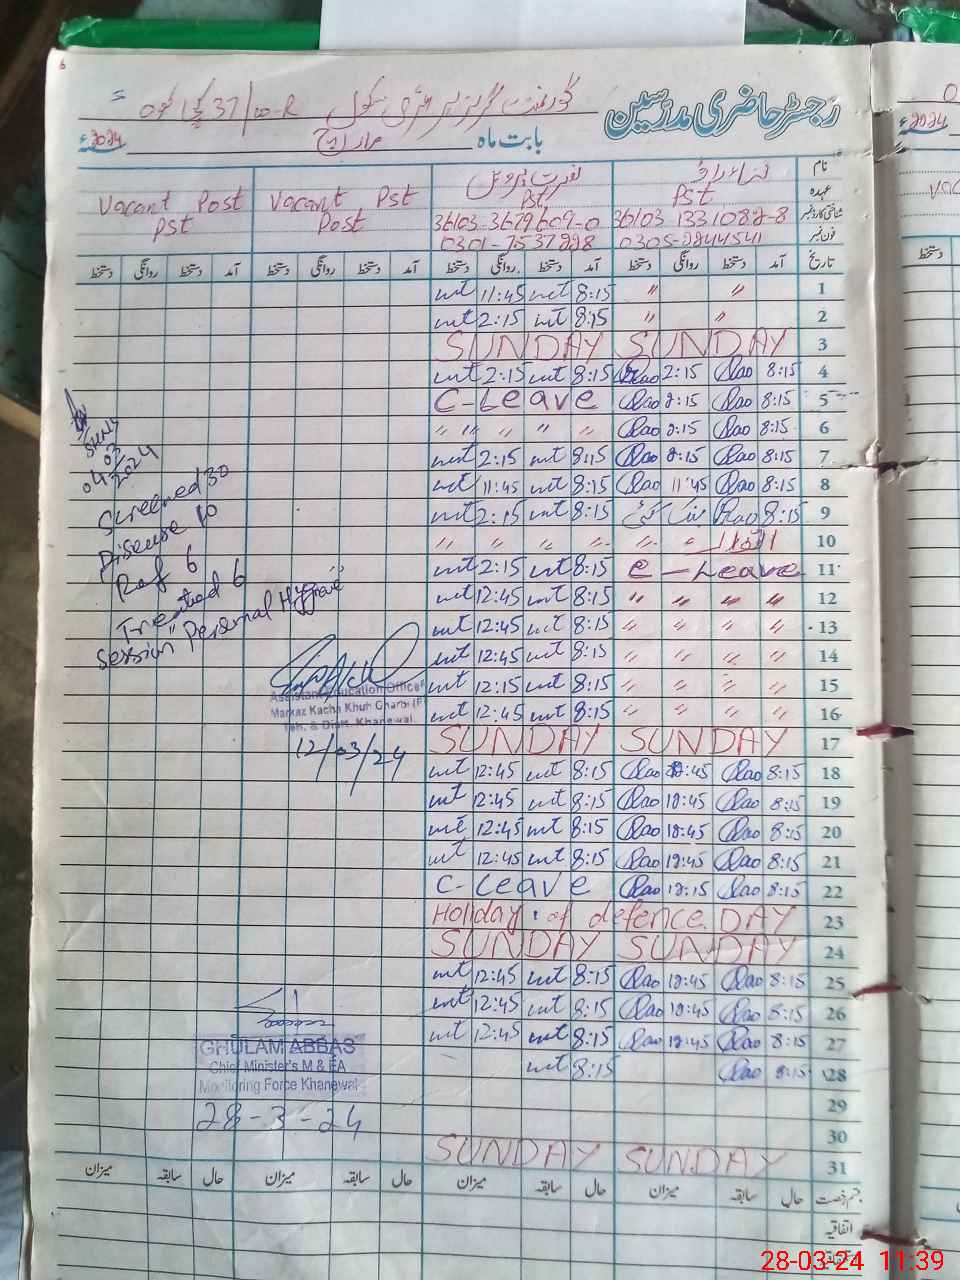 رجسٹر حاضری مدرسین
گورنمنٹ گرلز پرائمری سکول 37/10-R
بابت ماہ مارچ 2024ء
نام
عہدہ Pst Pst Vacant Pst Post Vacant Post Pst
شناختی کارڈ نمبر 36103 1331082-8 36103-3679609-0
فون نمبر 0305-2844541 0301-7537228
تاریخ آمد دستخط روانگی دستخط آمد دستخط روانگی دستخط آمد دستخط روانگی دستخط آمد دستخط روانگی دستخط
11:45 8:15 〃 〃 1
2:15 8:15 〃 〃 2
SUNDAY SUNDAY 3
2:15 8:15 Rao 2:15 Rao 8:15 4
C-Leave Rao 2:15 Rao 8:15 5
〃 〃 〃 〃 Rao 2:15 Rao 8:15 6
2:15 8:15 Rao 2:15 Rao 8:15 7
11:45 8:15 Rao 11:45 Rao 8:15 8
2:15 8:15 Rao 8:15 9
〃 〃 〃 〃 〃 〃 اتوار 10
2:15 8:15 e-Leave 11
12:45 8:15 〃 〃 〃 〃 12
12:45 8:15 〃 〃 〃 〃 13
12:45 8:15 〃 〃 〃 〃 14
12:15 8:15 〃 〃 〃 〃 15
12:45 8:15 〃 〃 〃 〃 16
SUNDAY SUNDAY 17
12:45 8:15 Rao 12:45 Rao 8:15 18
12:45 8:15 Rao 12:45 Rao 8:15 19
12:45 8:15 Rao 12:45 Rao 8:15 20
12:45 8:15 Rao 12:45 Rao 8:15 21
C-Leave Rao 12:15 Rao 8:15 22
Holiday of defence DAY 23
SUNDAY SUNDAY 24
12:45 8:15 Rao 12:45 Rao 8:15 25
12:45 8:15 Rao 12:45 Rao 8:15 26
12:45 8:15 Rao 12:45 Rao 8:15 27
8:15 Rao 8:15 28
29
30
SUNDAY SUNDAY 31
حال سابقہ میزان حال سابقہ میزان حال سابقہ میزان حال سابقہ میزان
اتفاقیہ
04/03/2024
Screened 30
Disease 10
Ref 6
Treated 6
Session "Personal Hygiene"
Assistant Education Officer
Markaz Kacha Khuh Gharbi (F)
Teh. & Distt. Khanewal
12/03/24
GHULAM ABBAS
Chief Minister's M & EA
Monitoring Force Khanewal
28-3-24
2024ء
28-03-24 11:39